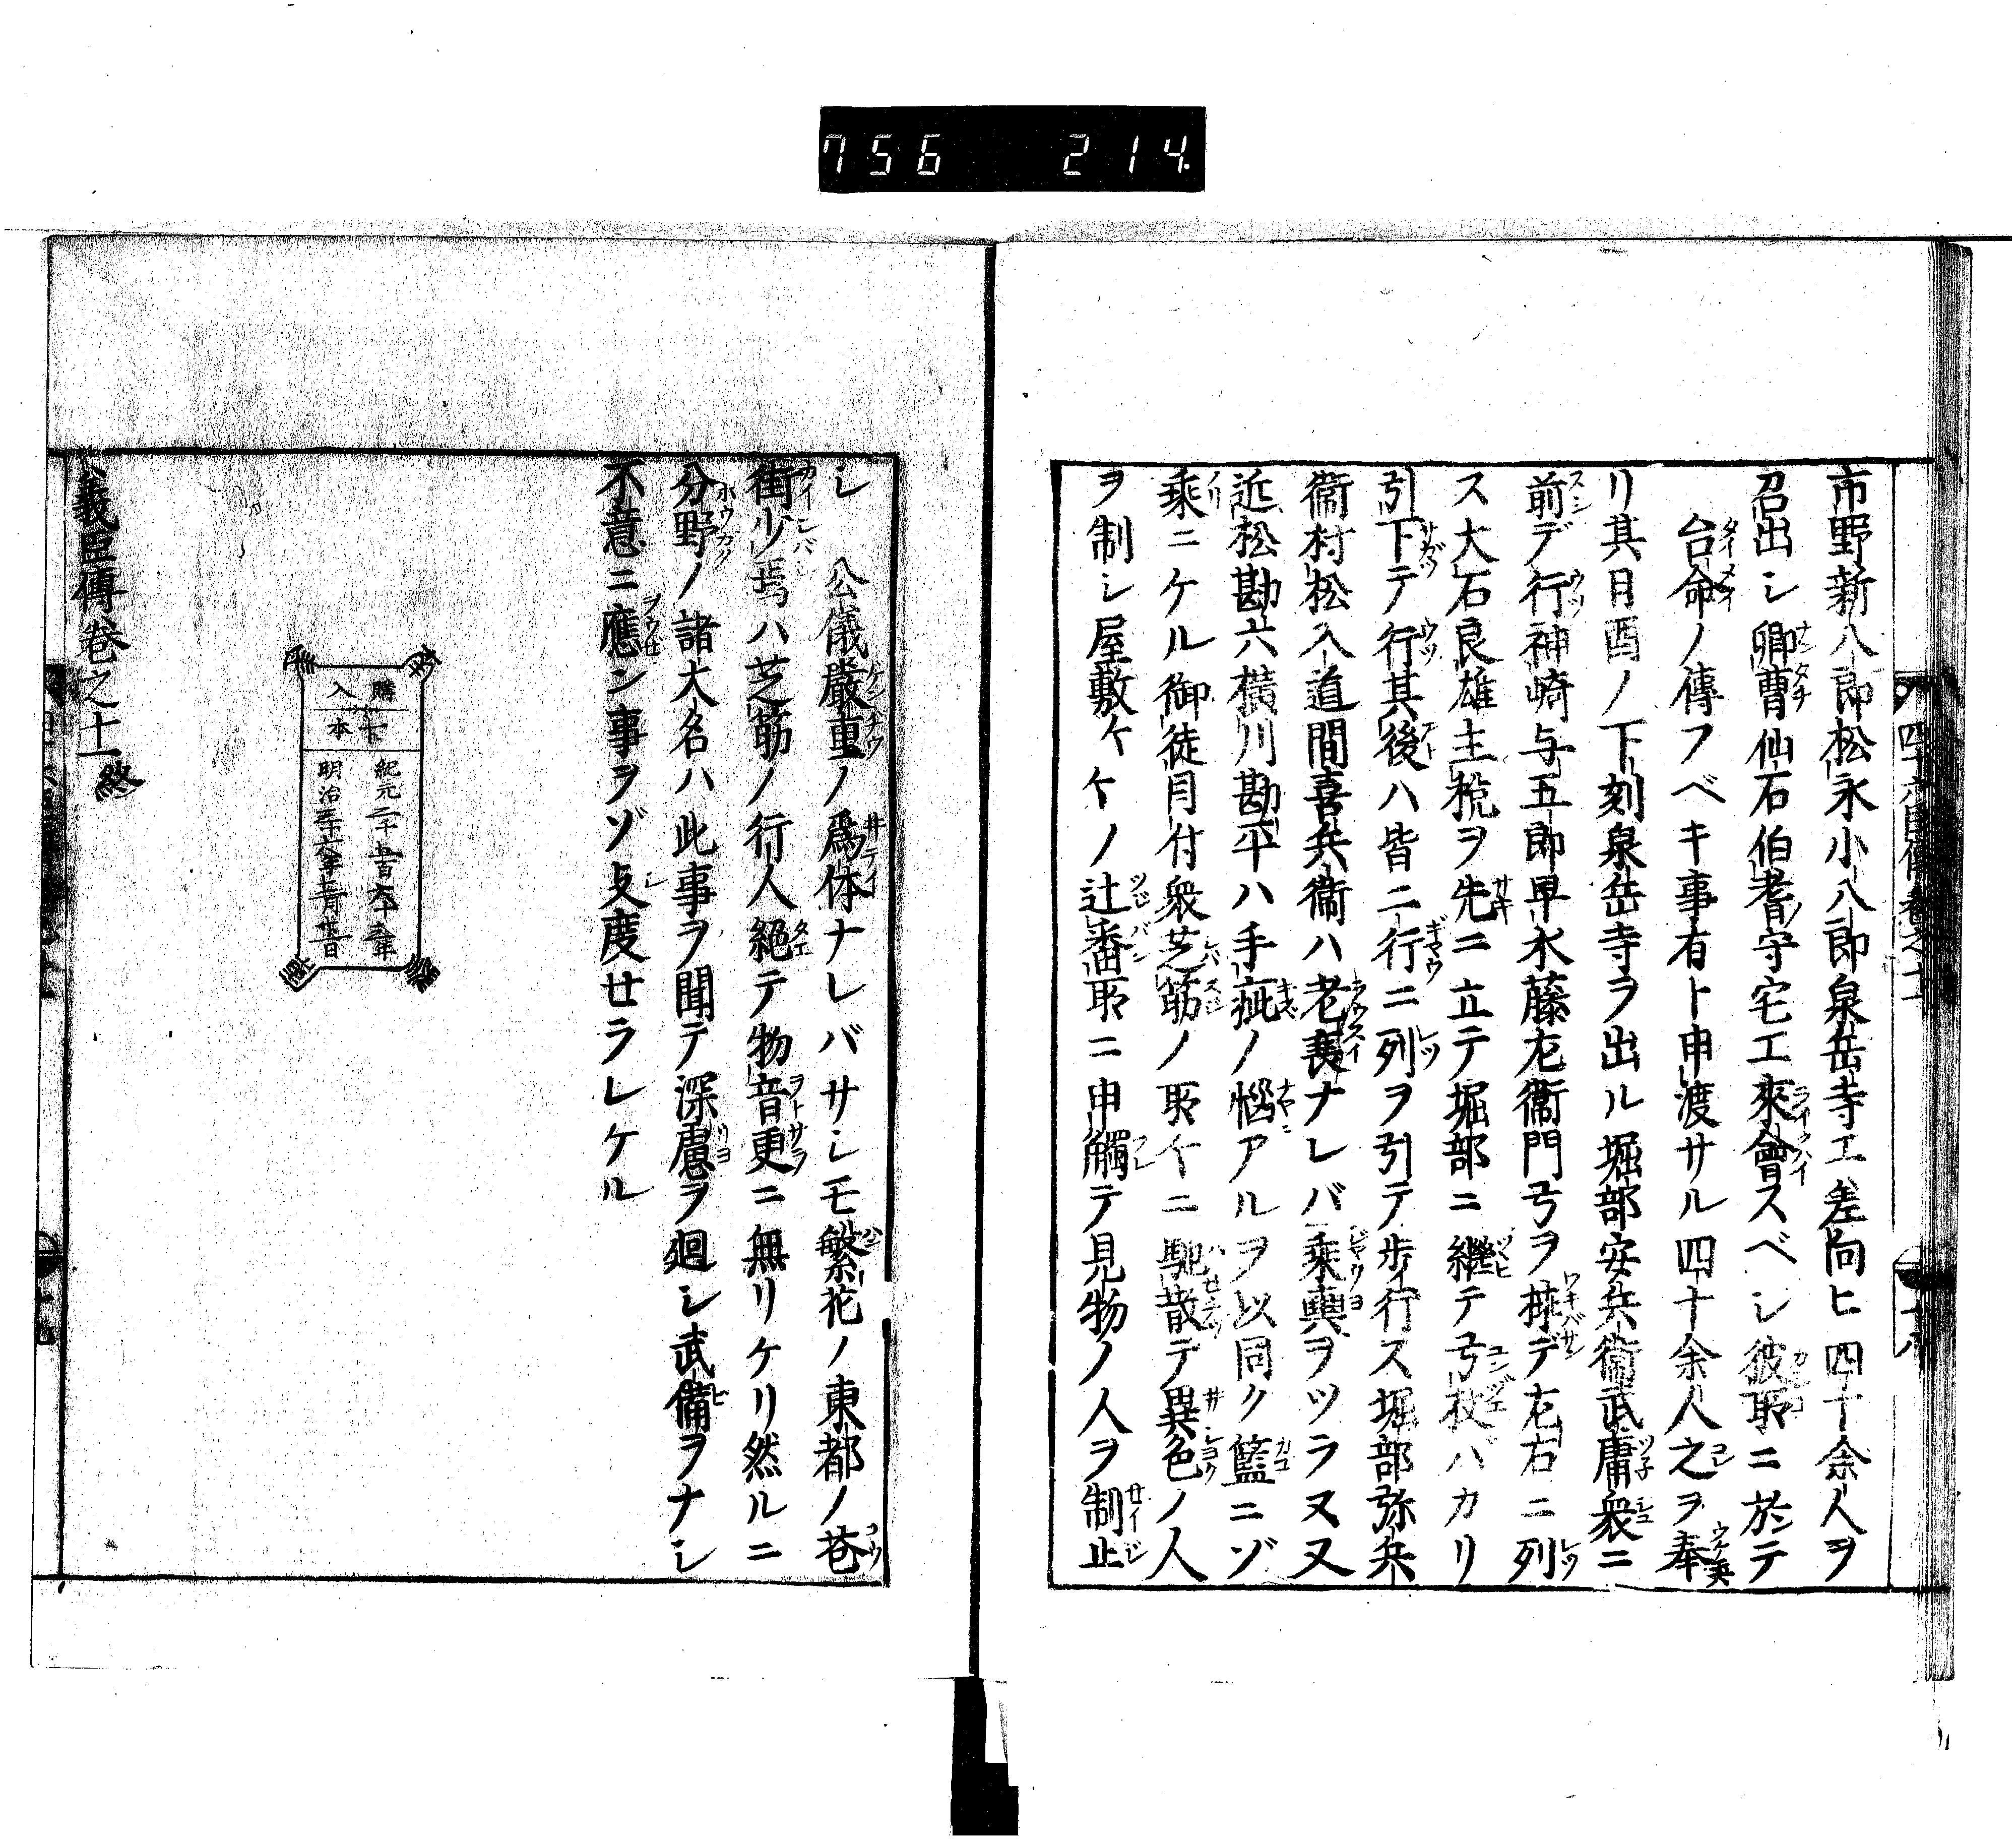 756 214
市野新八郎松永小八郎泉岳寺エ差向ヒ四十余人ヲ
召出シ卿曹仙石伯耆守宅エ來會スベシ彼所ニ於テ
台命ノ傳フベキ事有ト申渡サル四十余人之ヲ奉
リ其日酉ノ下刻泉岳寺ヲ出ル堀部安兵衞武庸衆ニ
前デ行神崎与五郎早水藤左衞門弓ヲ挾デ左右ニ列
ス大石良雄主税ヲ先ニ立テ堀部ニ継テ弓杖バカリ
引下テ行其後ハ皆二行ニ列ヲ引テ歩行ス堀部弥兵
衞村松入道間喜兵衞ハ老衰ナレバ乘輿ヲツラヌ又
近松勘六横川勘平ハ手疵ノ悩アルヲ以同ク籃ニゾ
乘ニケル御徒目付衆芝筋ノ所々ニ馳散テ異色ノ人
ヲ制シ屋敷々々ノ辻番所ニ申觸テ見物ノ人ヲ制止
シ 公儀嚴重ノ爲体ナレバサシモ繁花ノ東都ノ巷
街少焉ハ芝筋ノ行人絕テ物音更ニ無リケリ然ルニ
分野ノ諸大名ハ此事ヲ聞テ深慮ヲ廻シ武備ヲナシ
不意ニ應ン事ヲゾ支度せラレケル
購入
本
紀元二千五百六十三年
明治三十六年
義臣傳卷之十一終